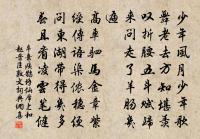 少年風月少年歌
舞老去方知堪羡
叹折腰五斗賦歸
来問走了羊腸幾
遍
高車駟馬金章紫
綬傳語渠儂穩便
問東湖帶得幾多
春且看凌雲筆健
辛棄疾鵲橋仙席上和
趙晉臣敷文詞典網喜